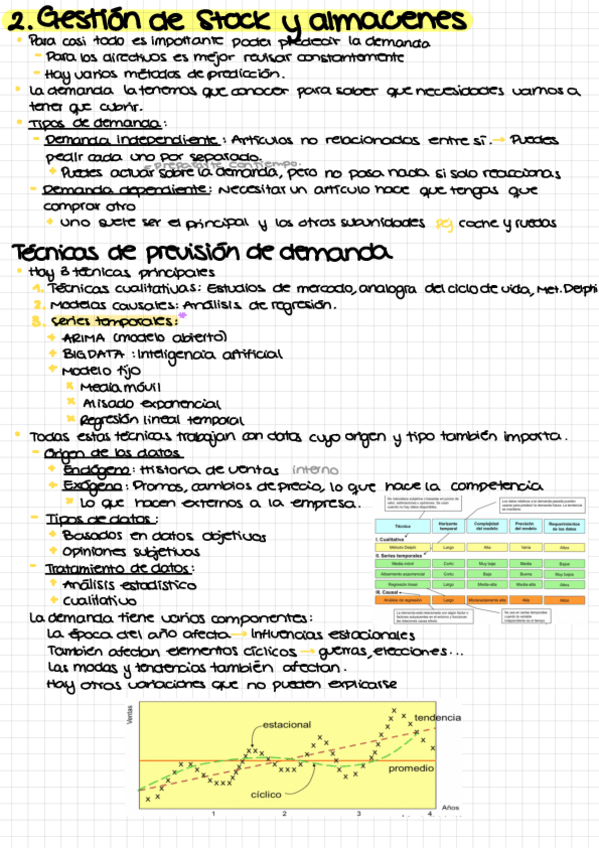 2. Gestión de Stock y almacenes
Para casi todo es importante poder predecir la demanda
- Para los directivos es mejor revisar constantemente
- Hay varios métodos de predicción.
La demanda la tenemos que conocer para saber que necesidades vamos a
tener que cubrir.
Tipos de demanda:
- Demanda independiente: Artículos no relacionados entre sí. → Puedes
pedir cada uno por separado.
= prepararte con tiempo.
+ Puedes actuar sobre la demanda, pero no pasa nada si solo reaccionas
- Demanda dependiente: Necesitar un artículo hace que tengas que
comprar otro
+ uno suele ser el principal y los otros subunidades pej coche y ruedas
Técnicas de previsión de demanda
Hay 3 técnicas principales
1. Técnicas cualitativas: Estudios de mercado, analogía del ciclo de vida, Met. Delphi
2. Modelos causales: Análisis de regresión.
3. Series temporales: *
+ ARIMA (modelo abierto)
+ BIG DATA: Inteligencia artificial
+ Modelo fijo
* Media móvil
* Alisado exponencial
* Regresión lineal temporal
Todas estas técnicas trabajan con datos cuyo origen y tipo también importa.
- Origen de los datos
+ Endógeno: Historia de ventas interno
+ Exógeno: Promos, cambios de precio, lo que hace la competencia
* lo que hacen externos a la empresa.
- Tipos de datos:
+ Basados en datos objetivos
+ Opiniones subjetivas
- Tratamiento de datos:
+ Análisis estadístico
+ Cualitativo
Técnica Horizonte temporal Complejidad del modelo Precisión del modelo Requerimientos de los datos
I. Cualitativa
Método Delphi Largo Alta Varía Altos
II. Series temporales
Media móvil Corto Muy baja Media Bajos
Alisamiento exponencial Corto Baja Buena Muy bajos
Regresión lineal Largo Media-alta Media-alta Altos
III. Causal
Análisis de regresión Largo Moderadamente alta Alta Altos
La demanda tiene varios componentes:
La época del año afecta → Influencias estacionales
También afectan elementos cíclicos → guerras, elecciones...
Las modas y tendencias también afectan.
Hay otras variaciones que no pueden explicarse
Ventas
estacional
tendencia
promedio
cíclico
Años
1 2 3 4